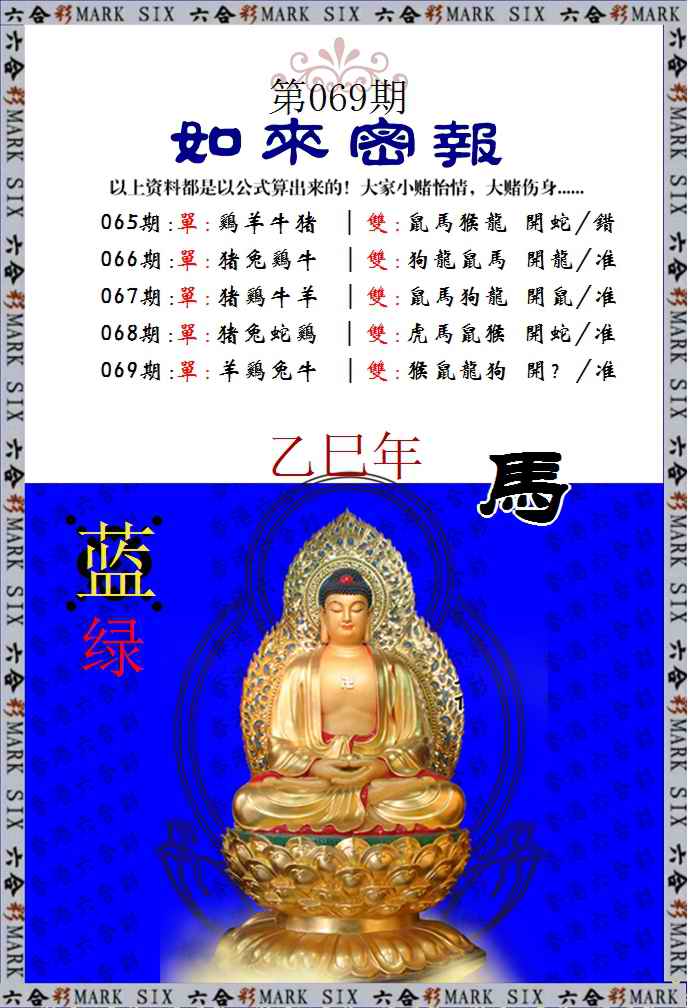 六合彩MARK SIX 六合彩MARK SIX 六合彩MARK SIX 六合彩MARK SIX 六合彩MARK SIX
第069期
如來密報
以上资料都是以公式算出来的！大家小赌怡情，大赌伤身......
065期:單:鷄羊牛猪 │雙:鼠馬猴龍 開蛇/錯
066期:單:猪兔鷄牛 │雙:狗龍鼠馬 開龍/准
067期:單:猪鷄牛羊 │雙:鼠馬狗龍 開鼠/准
068期:單:猪兔蛇鷄 │雙:虎馬鼠猴 開蛇/准
069期:單:羊鷄兔牛 │雙:猴鼠龍狗 開?/准
乙巳年
馬
蓝
绿
六合彩MARK SIX 六合彩MARK SIX 六合彩MARK SIX 六合彩MARK SIX 六合彩MARK